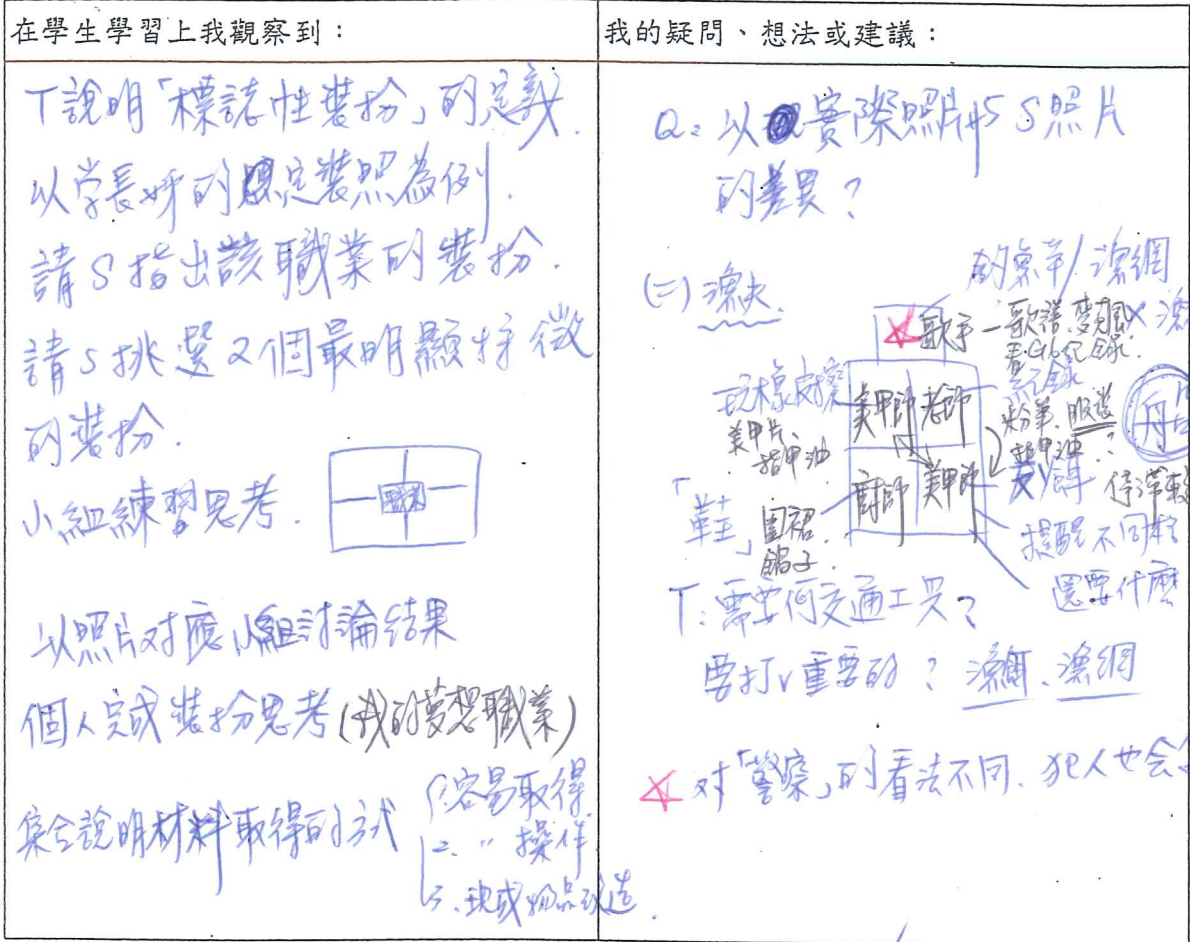 在學生學習上我觀察到：
T說明「標誌性裝扮」的定義.
以学長姊的定裝照為例.
請S指出該職業的裝扮.
請S挑選2個最明顯特徵
的裝扮.
小組練習思考.
職業
以照片对應小組討論結果
個人完成裝扮思考(我的夢想職業)
集合說明材料取得的方式
1.容易取得
2. 〃 操作
3.現成物品改造.
我的疑問、想法或建議：
Q: 以實際照片与S照片
的差異？
(二)漁夫
釣魚竿/漁網
歌手－歌譜.麥風
紀錄
玩橡皮擦
美甲片、
指甲油
美甲師 老師
粉筆、服裝
指甲油 ?
廚師 美甲師
「鞋」
圍裙
鍋子.
提醒不同
還要什麼
T: 需要何交通工具？
要打v重要的？ 漁餌、漁網
对「警察」的看法不同. 犯人也会